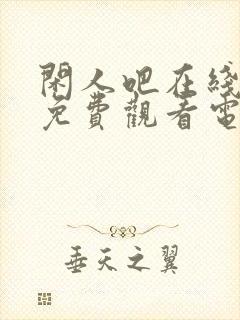 閑人吧在綫
免費觀看電
垂天之翼